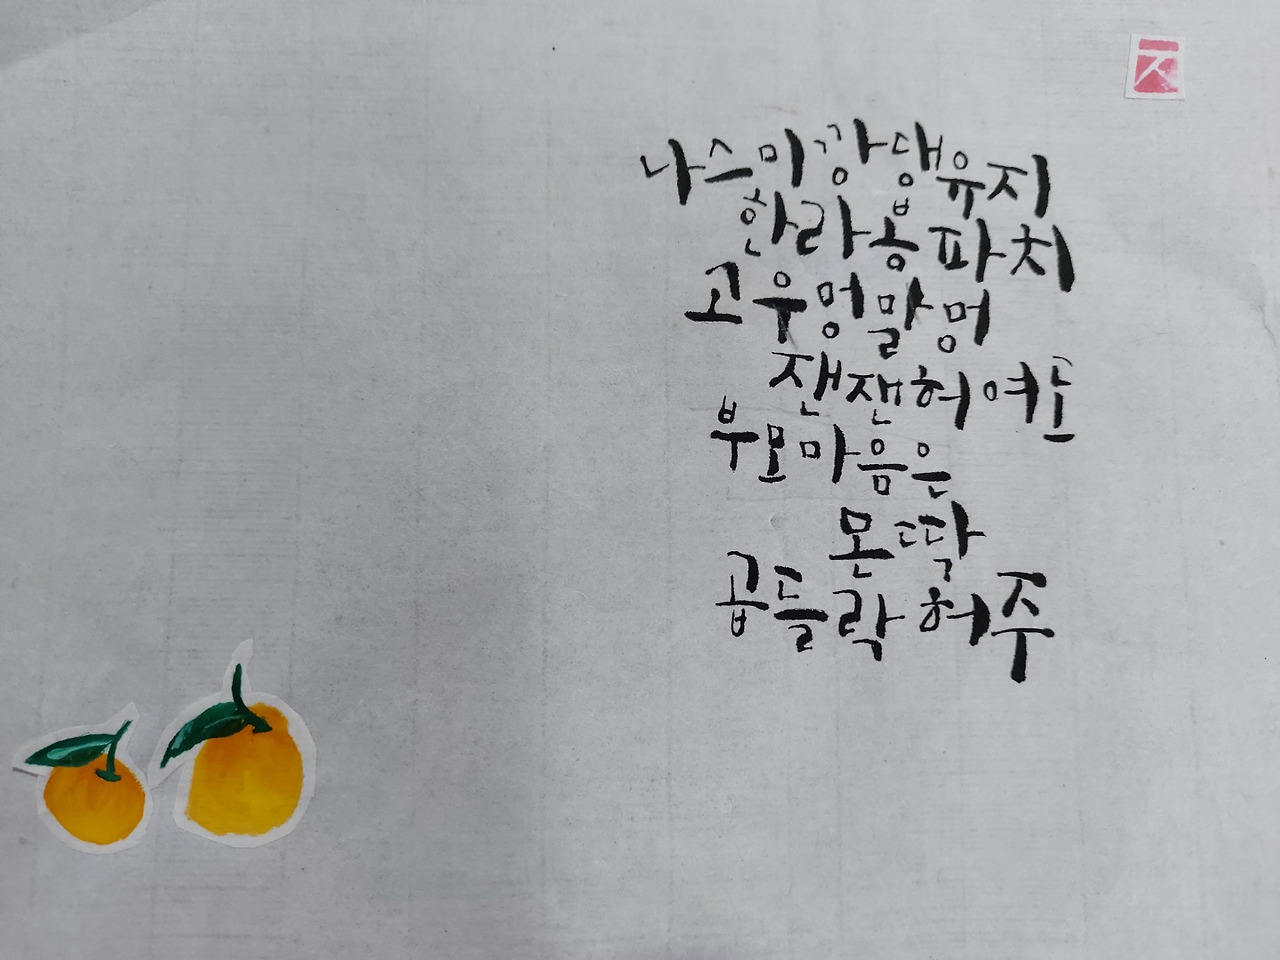 나스미깡댕유지
한라봉파치
고우멍말멍
잰잰허여도
부모마음은
몬딱
곱들락허주